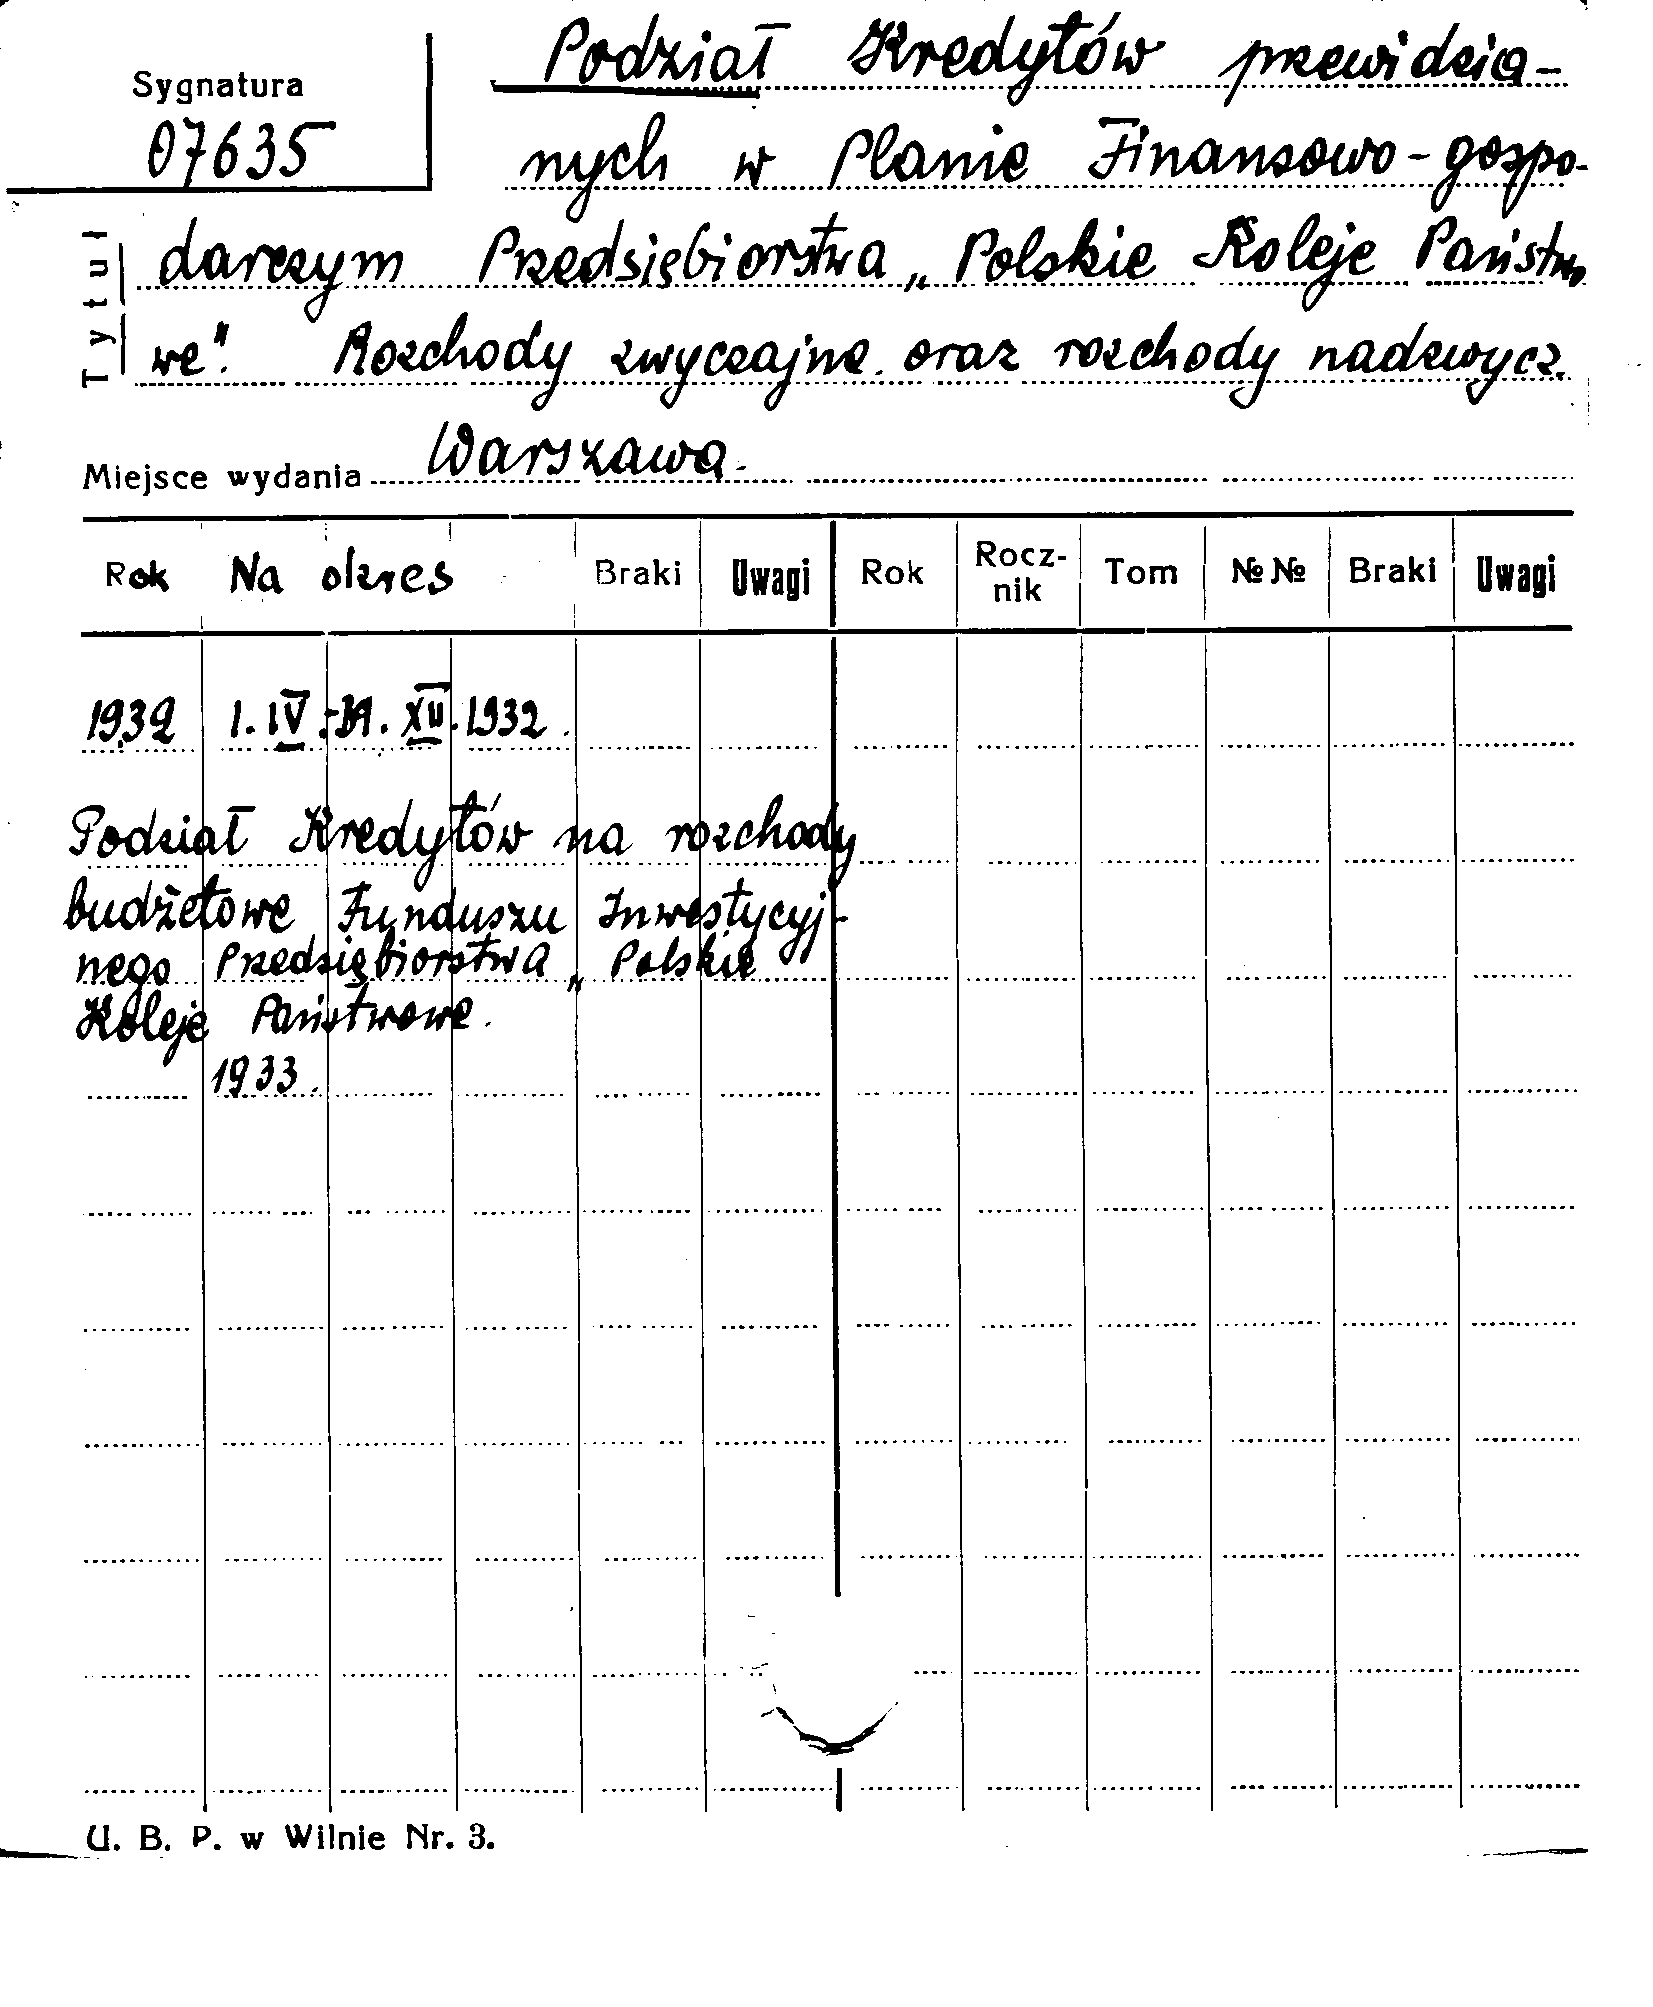 Sygnatura
07635
Podział Kredytów przewidzia-
nych w Planie Finansowo-gospo-
Tytuł
darczym Przedsiębiorstwa „Polskie Koleje Państwo
we". Rozchody zwyczajne. oraz rozchody nadzwycz.
Miejsce wydania Warszawa.
Rok Na okres Braki Uwagi Rok Rocz-nik Tom №№ Braki Uwagi
1932 1.IV.-31.XII.1932.
Podział Kredytów na rozchody
budżetowe Funduszu Inwestycyj-
nego Przedsiębiorstwa „Polskie
Koleje Państwowe.
1933.
U. B. P. w Wilnie Nr. 3.